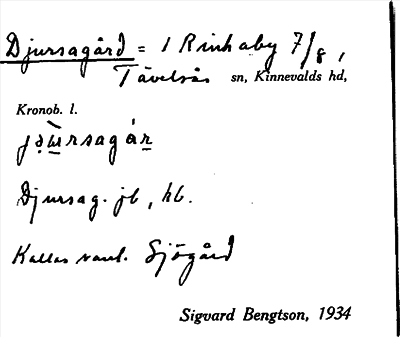 Djursagård = 1 Rinkaby 7/8,
Tävelsås sn, Kinnevalds hd,
Kronob. l.
Djursag. jb, hb.
Kallas vanl. Sjögård
Sigvard Bengtson, 1934